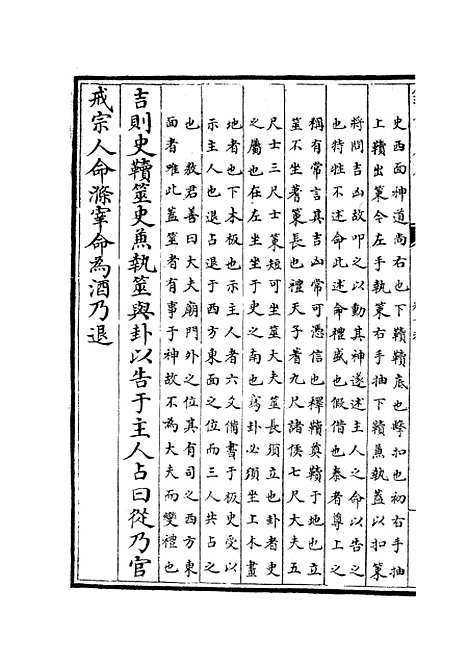 史西面神道尚右也下韇韇底也擊扣也初右手抽
上韇出筴令左手執筴右手抽下韇兼執蓋以扣筴
將問吉凶故叩之以動其神遂述主人之命以告之
也特牲不述命此述命禮盛也假借也泰者尊上之
稱有常言其吉凶常可憑信也釋韇奠韇于地也立
筮不坐蓍筴長也禮天子蓍九尺諸侯七尺大夫五
尺士三尺士筴短可坐筮大夫筮長須立也卦者史
之屬也在左坐坐于史之南也寫卦必須坐上木畫
地者也下木板也示主人者六爻備書于板史受以
示主人也退占退于西方東面之位而三人共占之
也 敖君善曰大夫廟門外之位其有司之西方東
面者唯此蓋筮者有事于神故不為大夫而變禮也
吉則史韇筮史兼執筮與卦以告于主人占曰從乃官
戒宗人命滌宰命為酒乃退